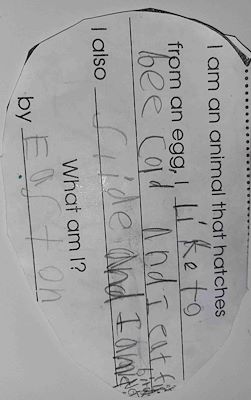 I am an animal that hatches
from an egg, I Like to
bee cold And I eat f
I also slide and I am
What am I?
by Easton